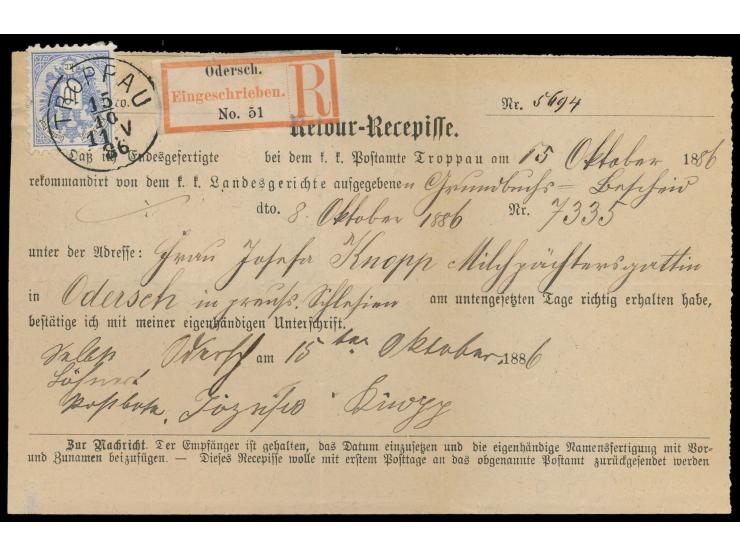 TROPPAU
15/10
11 V
86
Odersch.
Eingeschrieben.
No. 51
R
Nr. 5694
Retour-Recepisse.
Daß ich Endesgefertigte bei dem k. k. Postamte Troppau am 15 Oktober 1886
rekommandirt von dem k. k. Landesgerichte aufgegebenen Grundbuchs = Bescheid
dto. 8 Oktober 1886 Nr. 7335
unter der Adresse: Frau Josefa Knopp Milchpächtersgattin
in Odersch in preuß. Schlesien am untengesetzten Tage richtig erhalten habe,
bestätige ich mit meiner eigenhändigen Unterschrift.
Odersch am 15ten Oktober 1886
Postbote
Knopp
Zur Nachricht. Der Empfänger ist gehalten, das Datum einzusetzen und die eigenhändige Namensfertigung mit Vor-
und Zunamen beizufügen. — Dieses Recepisse wolle mit erstem Posttage an das obgenannte Postamt zurückgesendet werden